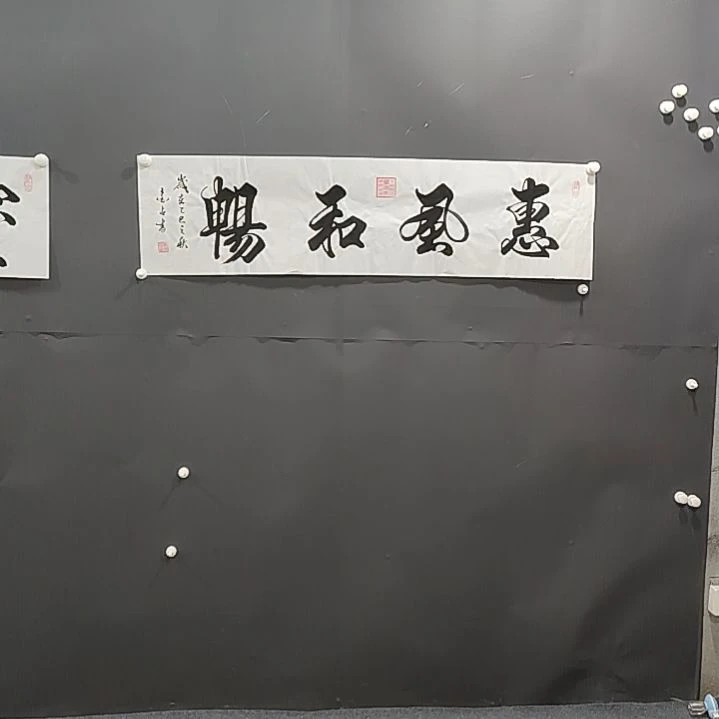 惠風和暢
歲在乙巳之秋